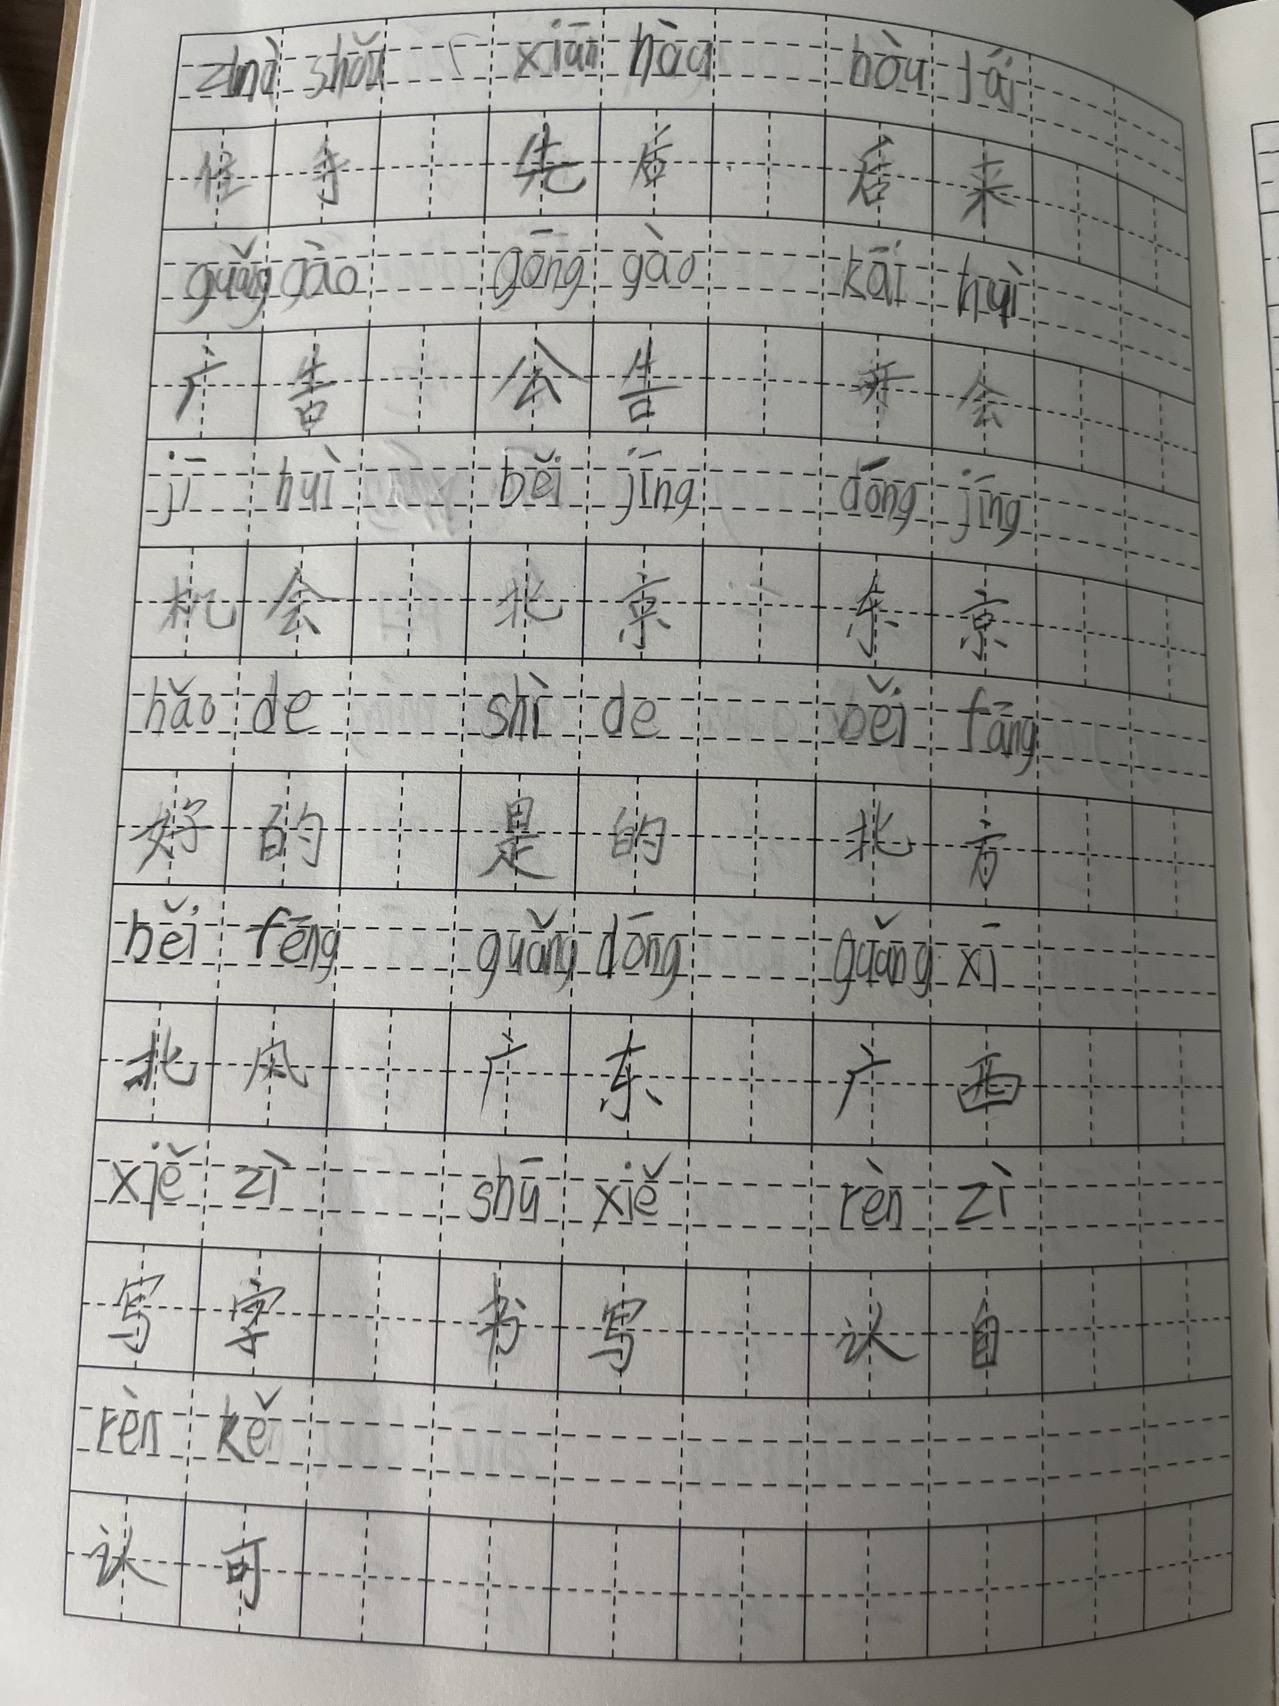 zhù shǒu xiān hòu hòu lái
住 手 先 后 后 来
guǎng gào gōng gào kāi huì
广 告 公 告 开 会
jī huì běi jīng dōng jīng
机 会 北 京 东 京
hǎo de shì de běi fāng
好 的 是 的 北 方
běi fēng guǎng dōng guǎng xī
北 风 广 东 广 西
xiě zì shū xiě rèn zì
写 字 书 写 认 自
rèn kě
认 可